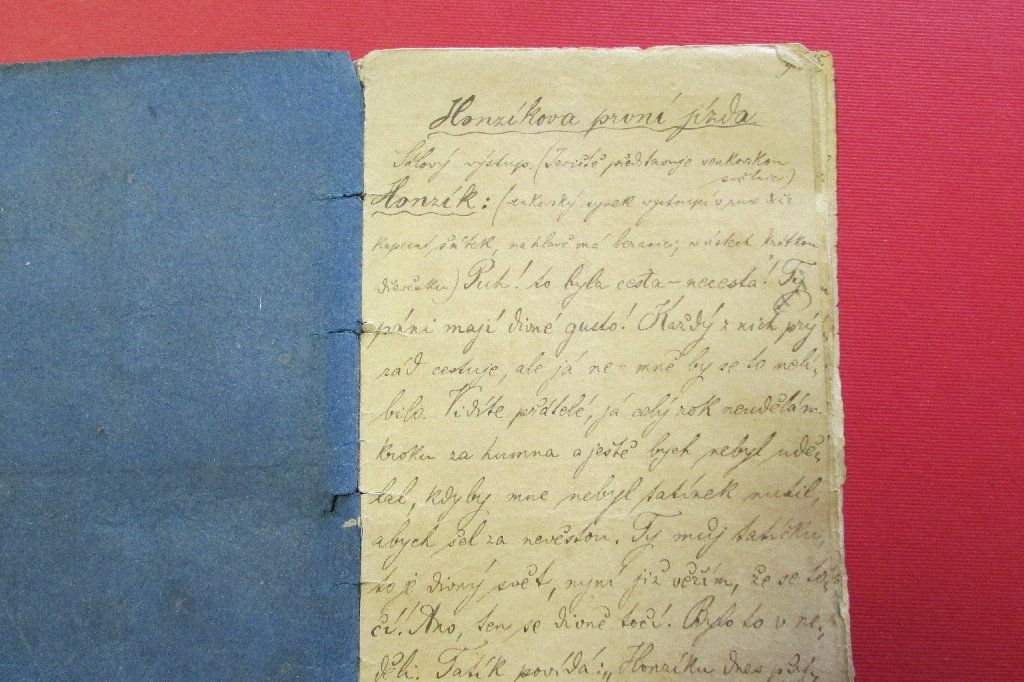 Honzíkova první jízda
Sólový výstup. (Jeviště představuje venkovskou
světnici)
Honzík: (venkovský synek vystoupí v ruce drží
kapesní šátek, na hlavě má beranici, v ústech krátkou
dievčuku) Puh! to byla cesta - necesta! Ty
páni mají divné gusto! Každý z nich prý
rád cestuje, ale já ne - mně by se to neli-
bilo. Vidíte přátelé, já celý rok neudělám
kroku za humna a ještě bych nebyl udě-
lal, kdyby mne nebyl tatínek nutil,
abych šel za nevěstou. Ty můj tatíčku,
to je divný svět, nyní již věřím, že se to-
čí. Ano, ten se divně točí. Bylo to v ne-
děli. Tatík povídá: „Honzíku dnes při-